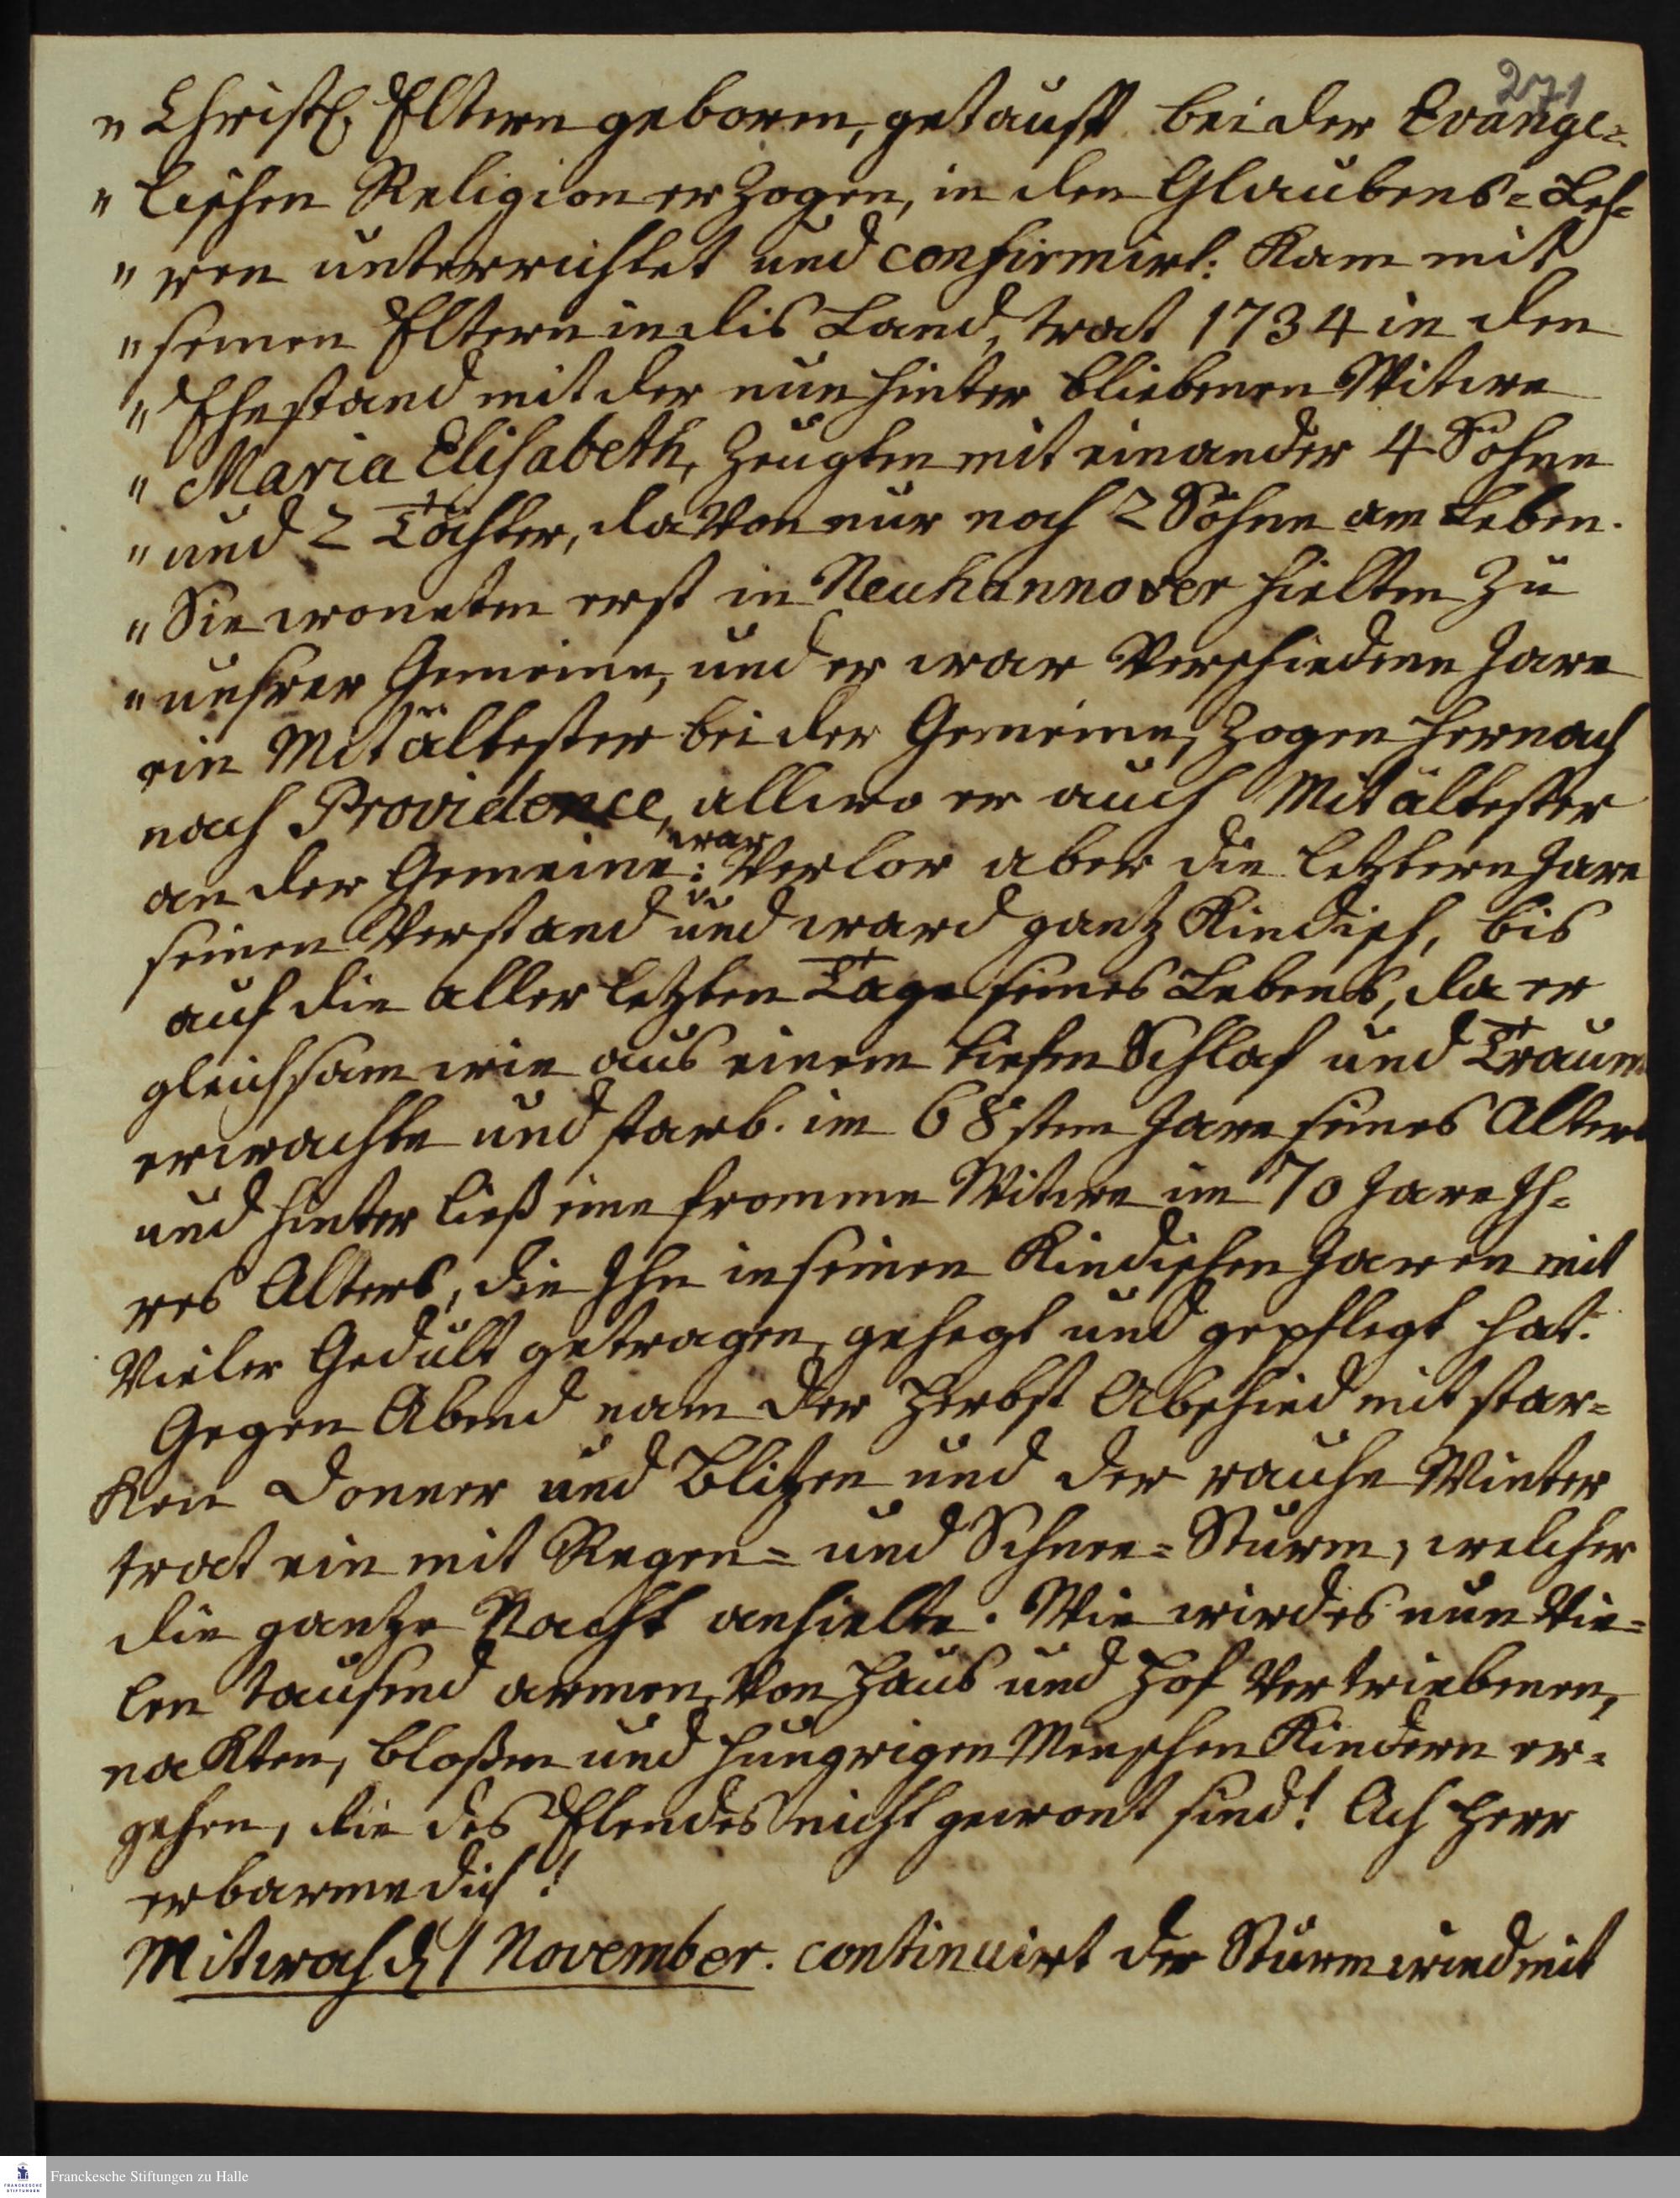 271
" Christl. Eltern geboren, getauft bei der Evange=
" lischen Religion erzogen, in den Glaubens=Leh=
" ren unterrichtet und confirmirt: Kam mit
" seinen Eltern in dis Land, trat 1734 in den
" Ehestand mit der nun hinter bliebenen Witwe
" Maria Elisabeth, Zeugten mit einander 4 Söhne
" und 2 Töchter, davon nur noch 2 Söhne am Leben.
" Sie woneten erst in Neuhannover hielten zu
" unsrer Gemeine, und er war Verschiedene Jare
ein Mitältester bei der Gemeine, Zogen hernach
nach Providence, allwo er auch Mitältester
an der Gemeine war: Verlor aber die letztern Jare
seinen Verstand und ward gantz Kindisch, bis
auf die aller letzten Tage seines Lebens, da er
gleichsam wie aus einem tiefen Schlaf und Traum
erwachte und starb. im 68sten Jare seines Alters
und hinter ließ eine fromme Witwe im 70 Jare Ih=
res Alters, die Ihn in seinen Kindischen Jaren mit
Vieler Gedult getragen, gehegt und gepflegt hat.
Gegen Abend nam der Herbst Abschied mit star=
Ken Donner und Blitzen und der rauhe Winter
trat ein mit Regen= und Schnee=Sturm, welcher
die gantze Nacht anhielte. Wie wird es nun Vie=
len tausend armen, Von Haus und Hof Vertriebenen,
naKten, bloßen und hungrigen Menschen Kindern er=
gehen, die des Elendes nicht gewont sind! Ach Herr
erbarme dich!
Mitwoch d 1 November. continuirt der Sturmwind mit
Franckesche Stiftungen zu Halle